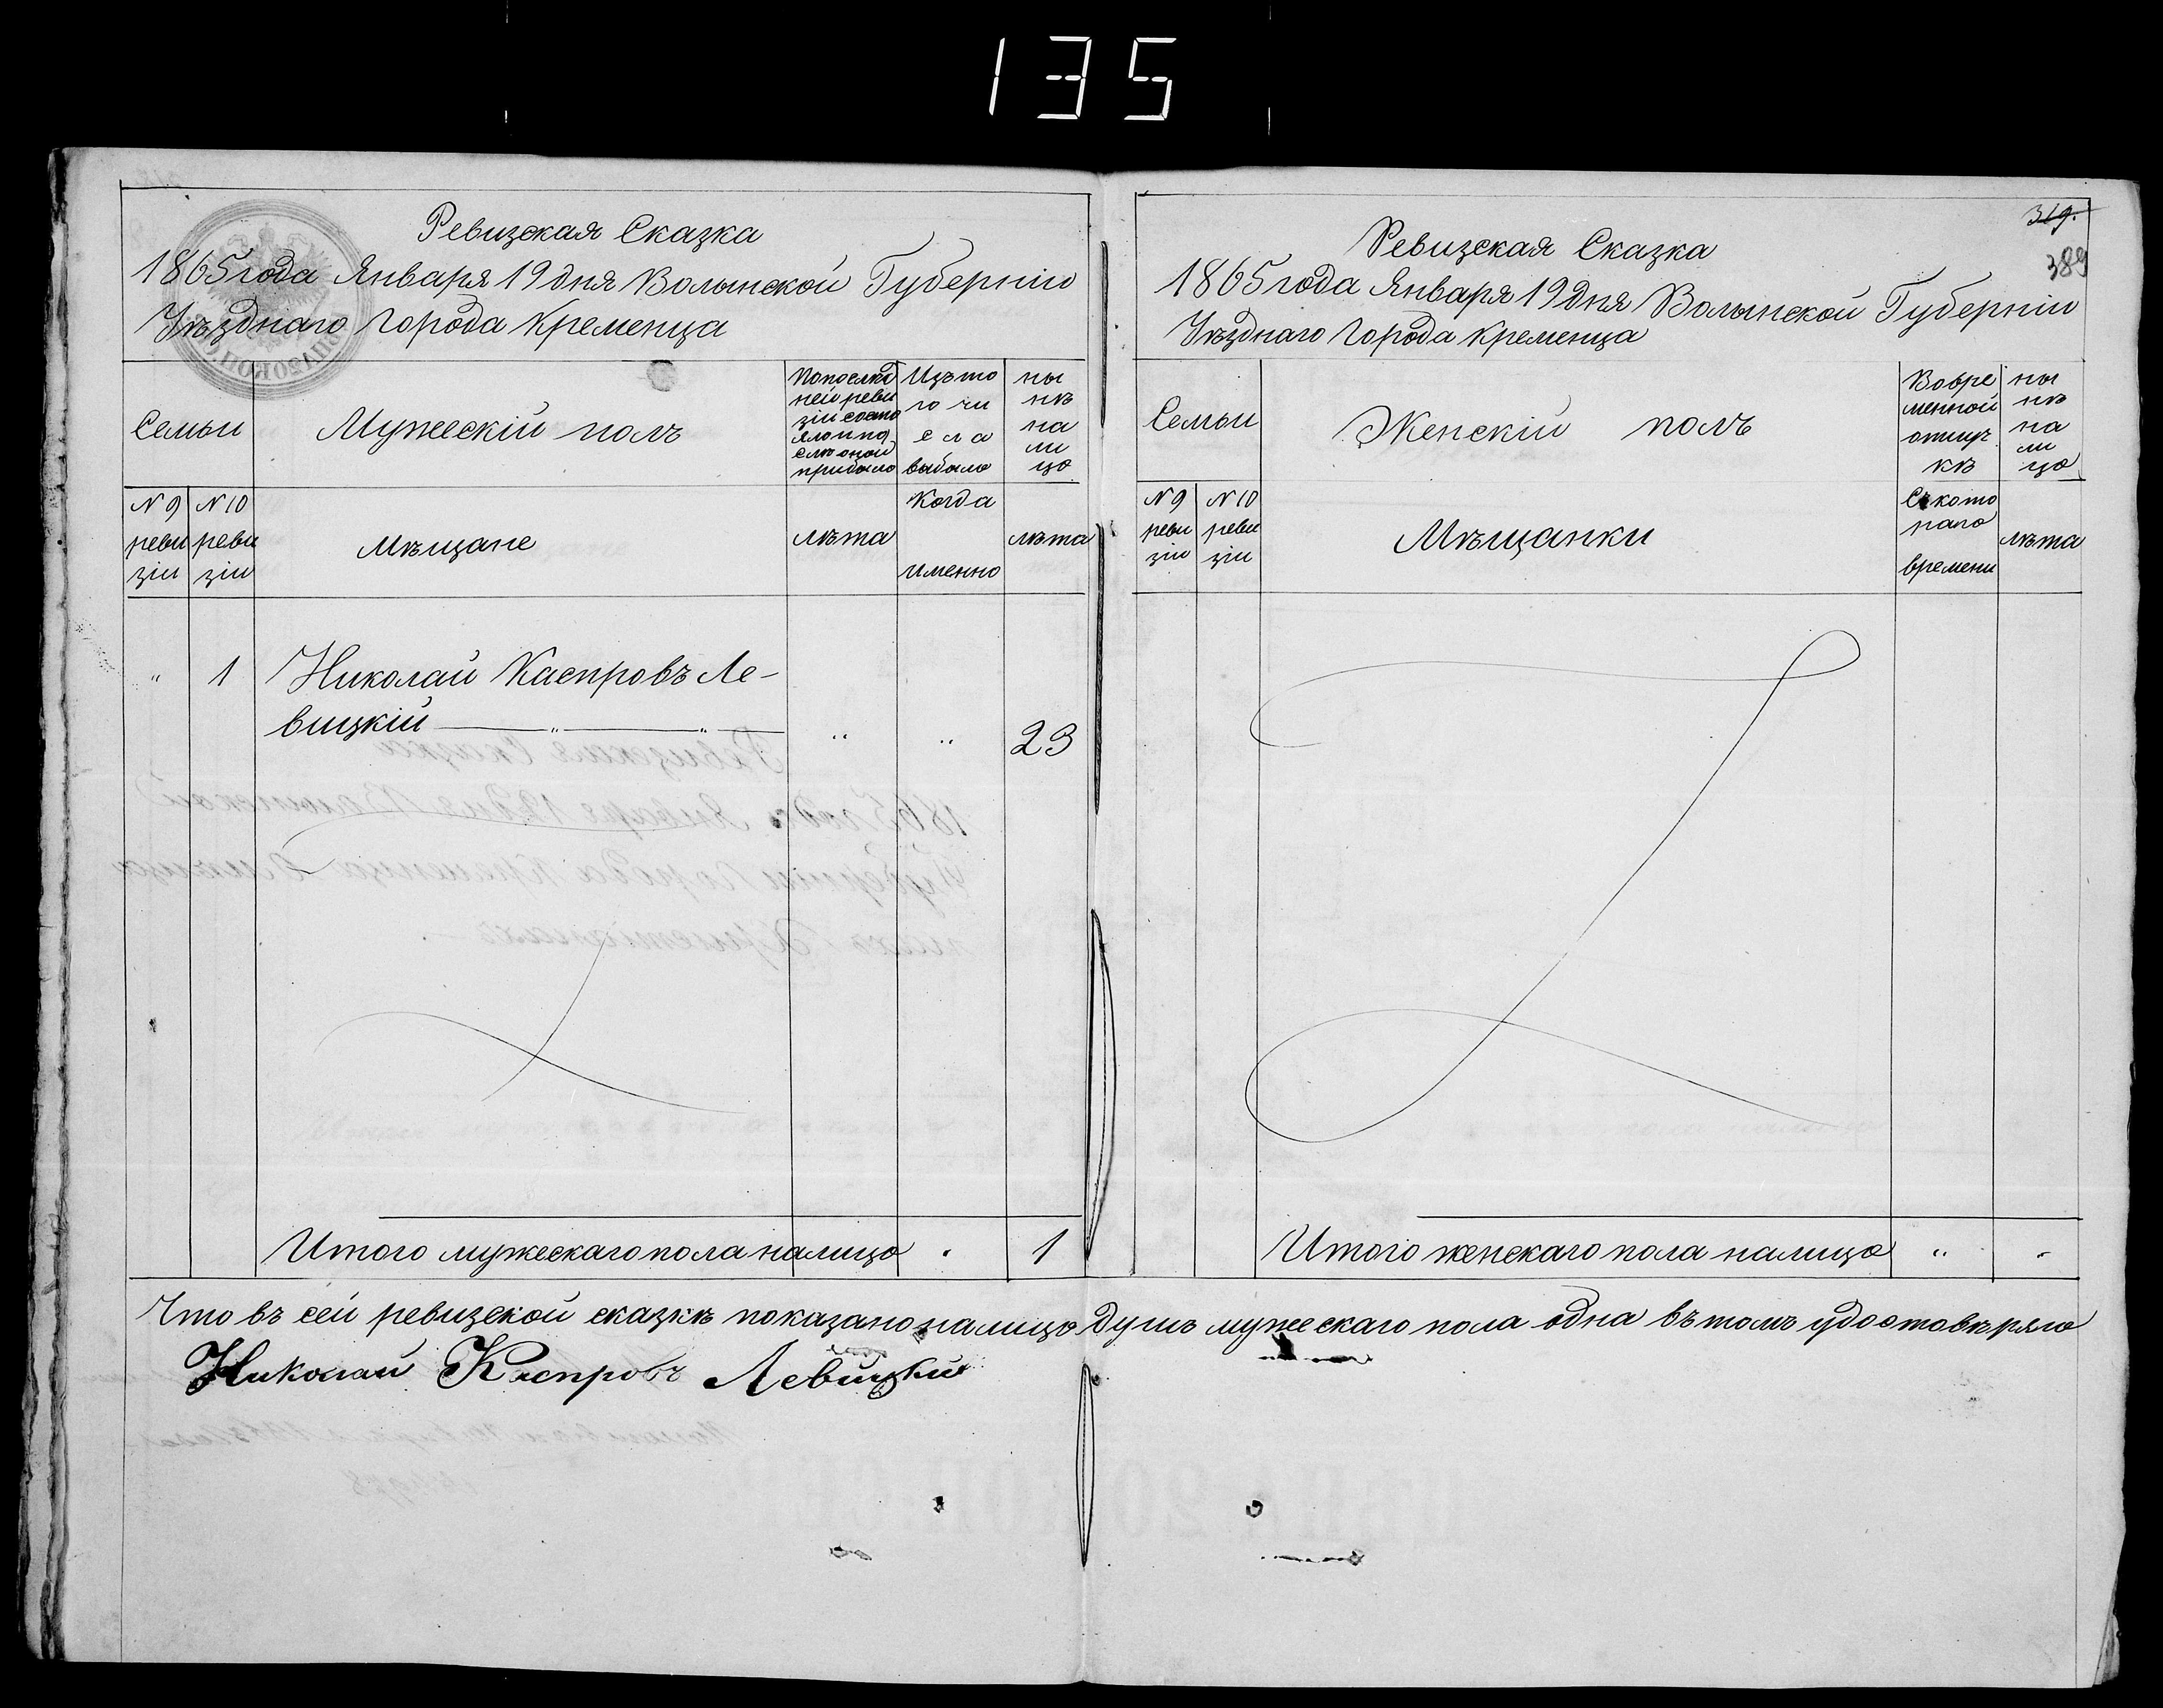 135
Ревизская Сказка
1865 года Января 19 дня Волынской Губерніи
Уѣзднаго города Кременца
Семьи
Мужескій полъ
По послѣд
ней реви
зіи состо
яло и по
слѣ оной
прибыло
Изъ то
го чи
сла
выбыло
ны
нѣ
на
ли
цо
№ 9
реви
зіи
№ 10
реви
зіи
Мѣщане
лѣта
Когда
именно
лѣта
" 1 Николай Каспровъ Ле-
вицкій " " " " 23
Итого мужескаго пола налицо . 1
319.
389
Ревизская Сказка
1865 года Января 19 дня Волынской Губерніи
Уѣзднаго города Кременца
Семьи
Женскій полъ
Во вре
менной
отлуч
кѣ
ны
нѣ
на
ли
цо
№ 9
реви
зіи
№ 10
реви
зіи
Мѣщанки
Съ кото
раго
времени
лѣта
Итого женскаго пола налицо " "
Что въ сей ревизской сказкѣ показано налицо душъ мужескаго пола одна въ томъ удостовѣряю
Николай Каспровъ Левицкій